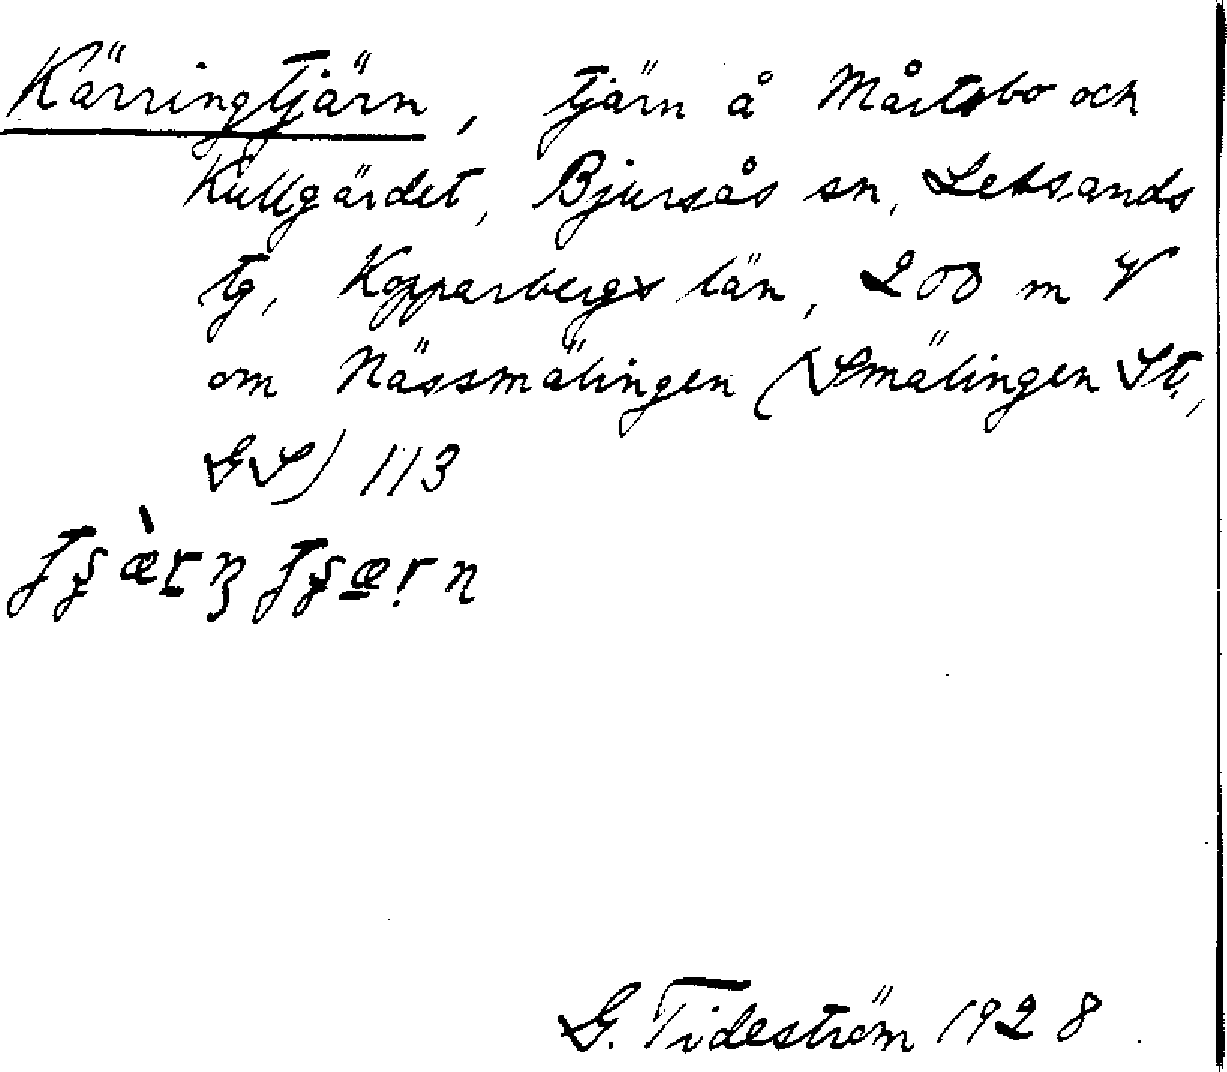 Kärringtjärn, tjärn å Mårtsbo och
Kullgärdet, Bjursås sn, Leksands
tg, Kopparbergs län, 200 m V
om Nässmälingen (Smälingen St,
GS) 113
G. Tideström 1928